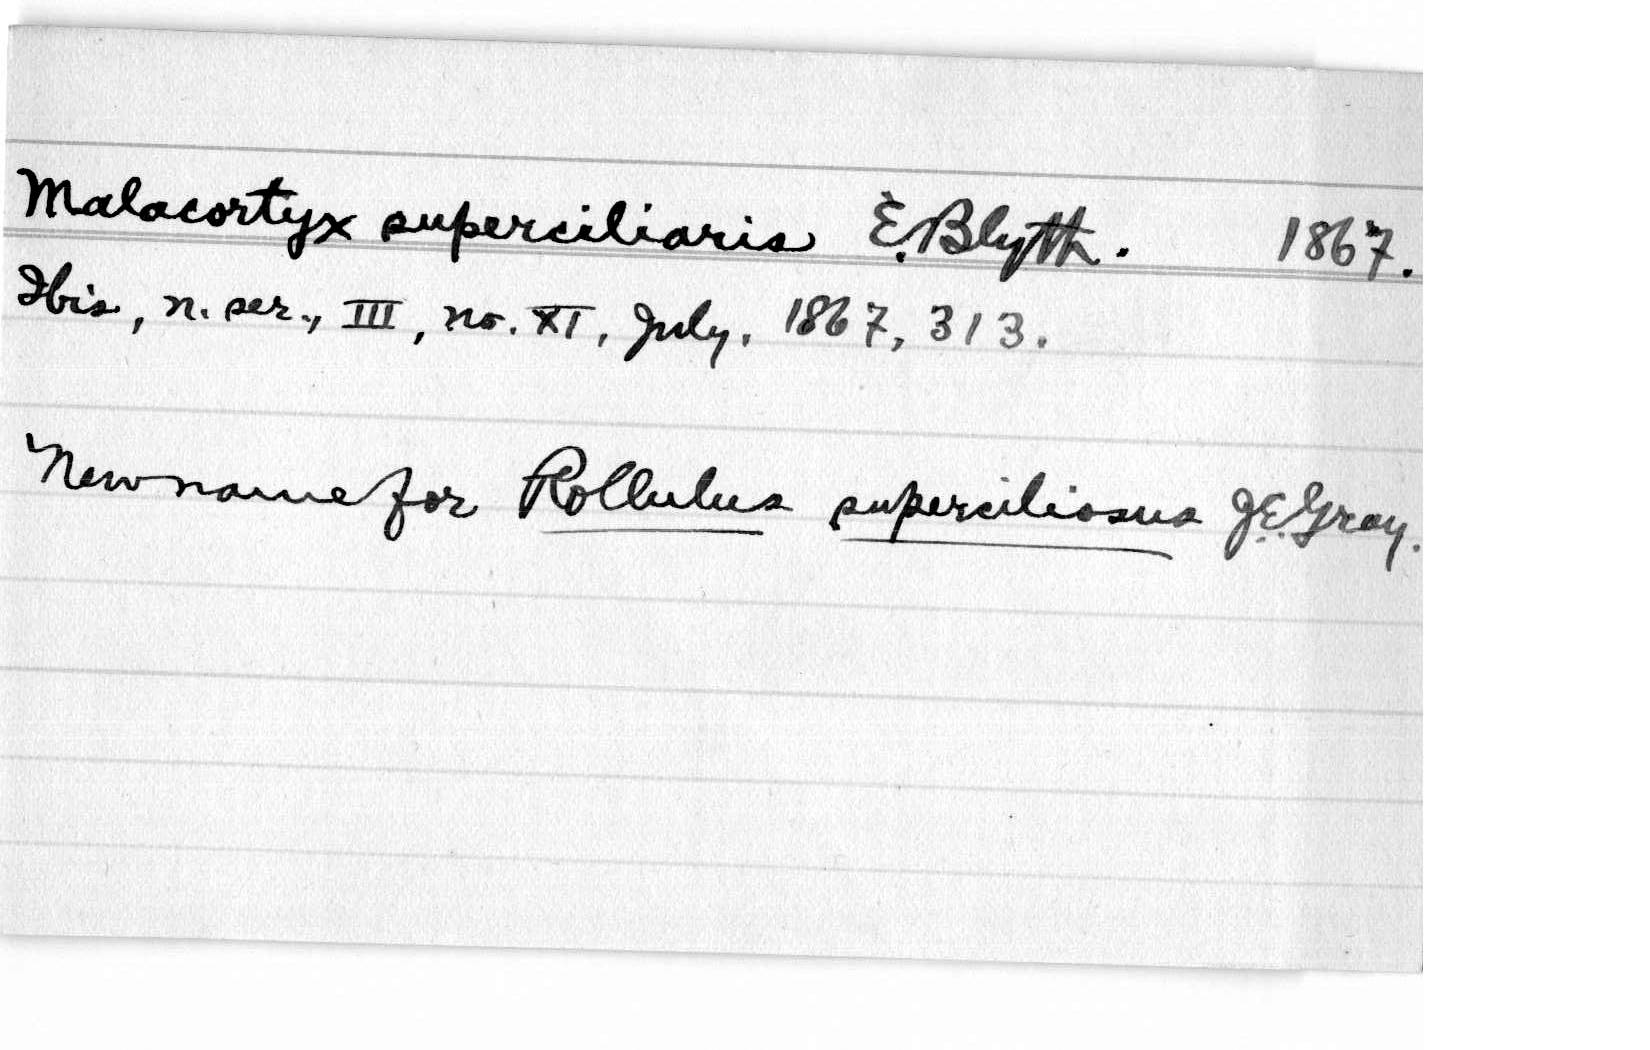 Malacortyx superciliaris E. Blyth. 1867.
Ibis, n. ser., III, no. XI, July, 1867, 313.
New name for Rollulus superciliosus J.E. Gray.